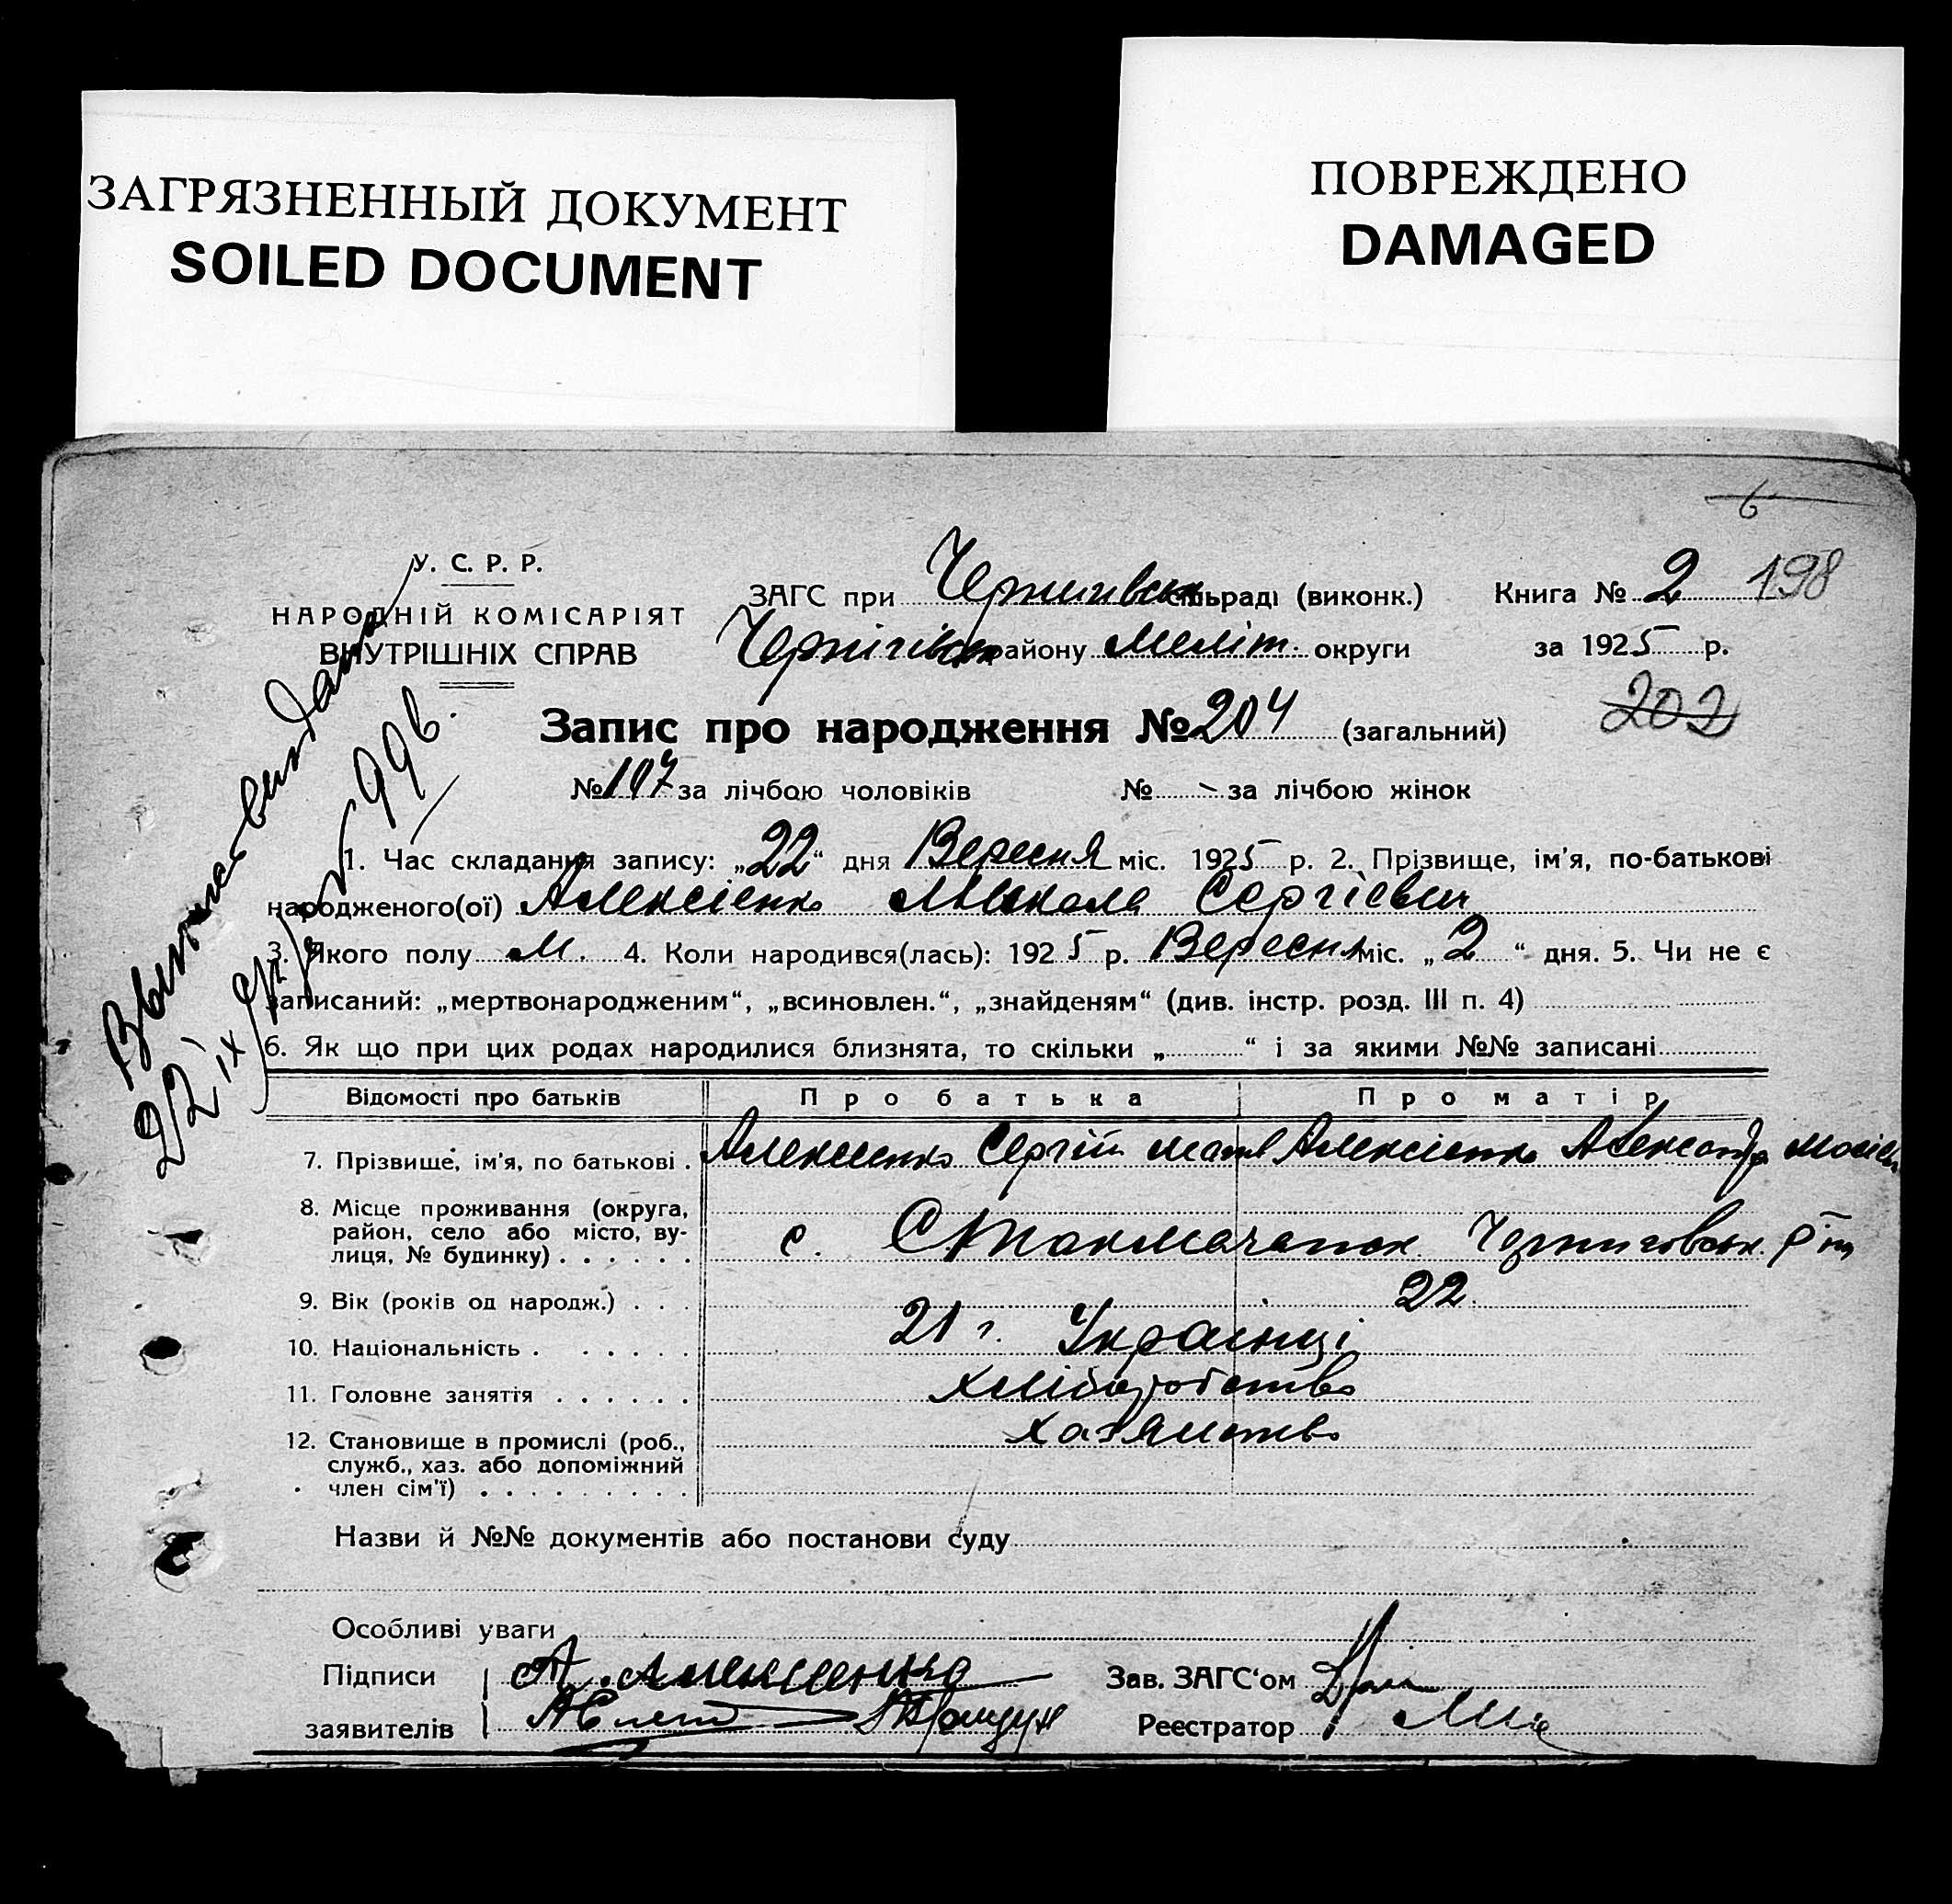 ЗАГРЯЗНЕННЫЙ ДОКУМЕНТ
SOILED DOCUMENT
ПОВРЕЖДЕНО
DAMAGED
6
У. С. Р. Р.
НАРОДНІЙ КОМІСАРІЯТ
ВНУТРІШНІХ СПРАВ
ЗАГС при Чернигівськ сільраді (виконк.)
Чернігівськ району Меліт. округи
Книга № 2 198
за 1925 р.
202
Запис про народження № 204 (загальний)
№ 107 за лічбою чоловіків № – за лічбою жінок
1. Час складання запису: „22“ дня Вересня міс. 1925 р. 2. Прізвище, ім’я, по-батькові
народженого(ої) Алексієнко Микола Сергієвич
3. Якого полу м. 4. Коли народився(лась): 1925 р. Вересня міс. „2“ дня. 5. Чи не є
записаний: „мертвонародженим“, „всиновлен.“, „знайденям“ (див. інстр. розд. III п. 4)
6. Як що при цих родах народилися близнята, то скільки „ “ і за якими №№ записані
Відомості про батьків Про батька Про матір
7. Прізвище, ім’я, по батькові Алексиенко Сергій Алексієнко
8. Місце проживання (округа,
район, село або місто, ву-
лиця, № будинку)
с. Стокмачанок Черниговськ. р-ну
9. Вік (років од народж.) 21 г. 22
10. Національність Українці
11. Головне заняття хліборобство
12. Становище в промислі (роб.,
служб., хаз. або допоміжний
член сім’ї)
хазяйство
Назви й №№ документів або постанови суду
Особливі уваги
Підписи
заявителів
А. Алексиенко
Зав. ЗАГС‘ом
Реєстратор